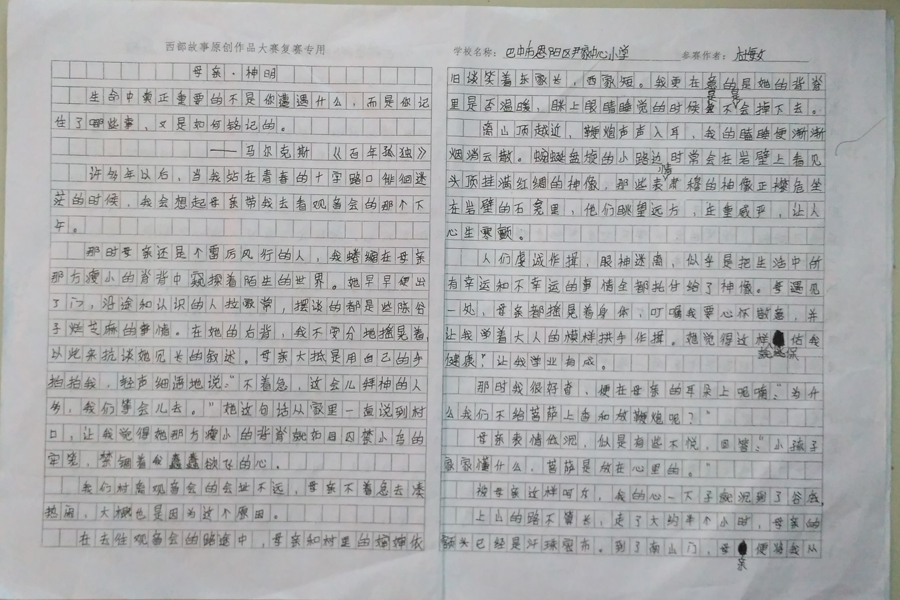 西部故事原创作品大赛复赛专用
母亲·神明
生命中真正重要的不是你遭遇什么，而是你记
住了哪些事，又是如何铭记的。
——马尔克斯 《百年孤独》
许多年以后，当我站在青春的十字路口徘徊迷
茫的时候，我会想起母亲带我去看观音会的那个下
午。
那时母亲还是个雷厉风行的人，我蜷缩在母亲
那方瘦小的背背中窥探着陌生的世界。她早早便出
了门，沿途和认识的人拉家常，摆谈的都是些陈谷
子烂芝麻的事情。在她的后背，我不安分地摇晃着，
以此来抗议她冗长的叙述。母亲大抵是用自己的手
拍拍我，轻声细语地说："不着急，这会儿拜神的人
多，我们等会儿去。"把这句话从家里一直说到村
口，让我觉得她那方瘦小的背脊就如囚禁小鸟的
牢笼，禁锢着我蠢蠢欲飞的心。
我们村离观音会的会址不远，母亲不着急去凑
热闹，大概也是因为这个原因。
在去往观音会的路途中，母亲和村里的婶婶依
学校名称：巴中市恩阳区尹家中心小学
参赛作者：
旧谈笑着东家长，西家短。我更在意的是她的背脊
里是否温暖，眯上眼瞌睡觉的时候是不会掉下去。
离山顶越近，鞭炮声声入耳，我的瞌睡便渐渐
烟消云散。蜿蜒盘旋的小路边时常会在岩壁上看见
头顶挂满红绸的神像，那些表情肃穆的神像正襟危坐
在岩壁的石龛里，他们眺望远方，庄重威严，让人
心生寒颤。
人们虔诚作揖，眼神迷离，似乎是把生活中所
有幸运和不幸运的事情全都托付给了神像。每遇见
一处，母亲都摇晃着身体，叮嘱我要心怀敬畏，并
让我学着大人的模样拱手作揖。想觉得这样能保佑我
健康，让我学业有成。
那时我很好奇，便在母亲的耳朵上呢喃："为什
么我们不给菩萨上香和放鞭炮呢？"
母亲表情低沉，似是有些不悦，回答："小孩子
家家懂什么，菩萨是放在心里的。"
被母亲这样呵斥，我的心一下子就沉到了谷底。
上山的路不算长，走了大约半个小时，母亲的
额头已经是汗珠密布。到了南山门，母亲便将我从